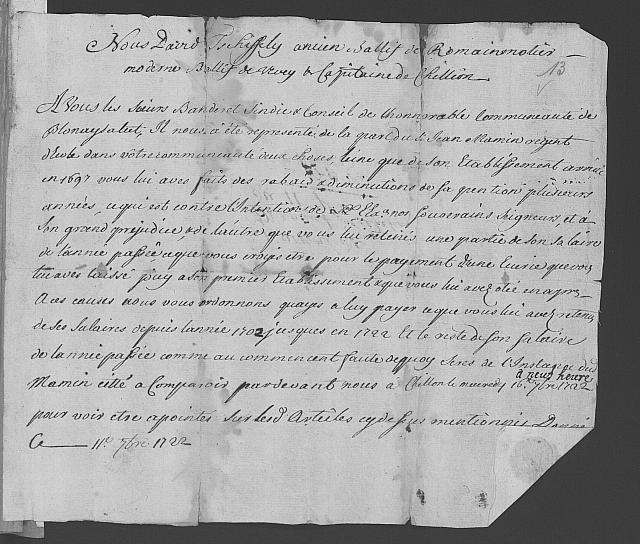 Nous David Tscheffely ancien Ballif de Romainmotier
moderne Ballif de Vevey & Capitaine de Chillion
13
A Vous les Sieurs Banderet Sindic & Conseil de lhonnorable Communeauté de
Blonay salut, Il nous à été representé de la part du Sr Jean Mamin regent
décole dans vôtre communauté deux choses, lune que de son Etablissement
en 1697 vous lui avés faits des rabais & diminutions de sa pention plusieurs
années, ce qui est contre l'Intention de nos souverains Seigneurs, et à
son grand préjudice, & de lautre que vous lui retenés une partie de son salaire
de lannée passée que vous croyés être pour le payement dune que vous
lui avés laissé a son premier Etablissement & que vous lui avez oté en apres
A ces causes nous vous ordonnons quays a luy payer ce que vous lui avez retenu
de ses salaires depuis lannée 1702 jusques en 1722 Et le reste de son salaire
de lannée passée comme au commencent faute de quoy serés de l'Instance dud
Mamin cité à Comparoir pardevant nous à Chillon le mercredy 16e 7bre 1722
à neuf heure
pour voir etre apointés sur lesd Articles cy dessus mentionnés Donné
Ce 11e 7bre 1722